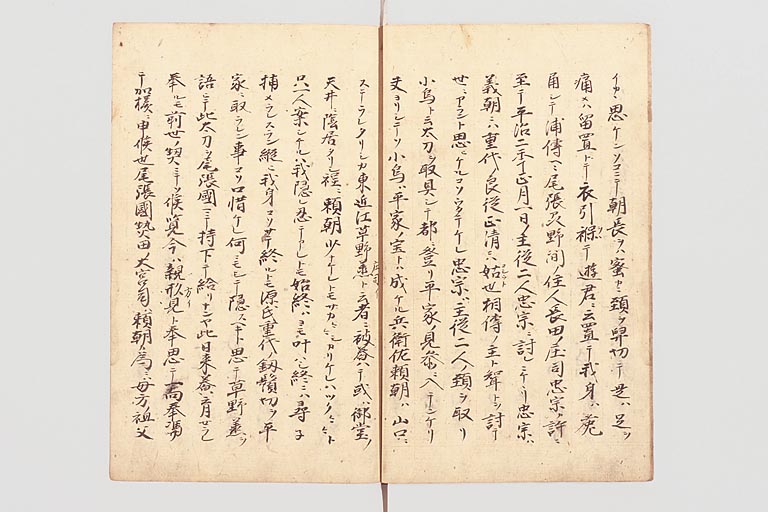 イカヽ思ケンソコニテ朝長ヲハ蜜ニ頚ヲ舁切テ足ハ足ヲ
痛メハ留置トテ衣引褓テ遊君ニ云置テ我身ハ
角シテ浦傳ヘニ尾張

野間ノ住人長田ノ庄司忠宗カ許ニ
至テ平治二年正月一日ノ主從二人忠宗ニ討レニケリ忠宗ハ
義朝ニハ重代ノ良従正清ニハ姑世相傳ノ主ト聟トヲ討テ
世ニアラント思ヒケルコソウタテケレ忠宗ハ主從二人ノ頚ヲ取リ
小烏ト云太刀ヲ取具シテ都ニ登リ平家ノ見参ニ入テンケリ
夫ヨリシテソ小烏ハ平家ノ宝トハ成ケル兵衛佐頼朝ハ山口ニ
ステラレタリシカ東近江草野

ト云者ニ被

テ或御堂ノ
天井ニ隠居タリ

頼朝少ナケレトモサカ〳〵シカリケレハツク〳〵ト
只一人案シケルハ我隠レ忍テアレトモ始終ハヨモ叶ハシ終ニハ尋子
捕メラレスラン縦ヒ我身コソ

終ルトモ源氏重代ノ釼鬚切ヲ平
家ニ取ラレン事コソ口惜ケレ何ニモシテ隠スヘキト思テ草野

ヲ
語ヒテ此太刀ヲ尾張國ヘ持下テ給リナンヤ此日来

奉ルモ前世ノ契ニテコソ候覧今ハ親

形見ト奉思テ

奉憑
テ加様ニ申候也尾張國熱田ノ大宮司ハ頼朝カ為ニハ母方ノ祖父